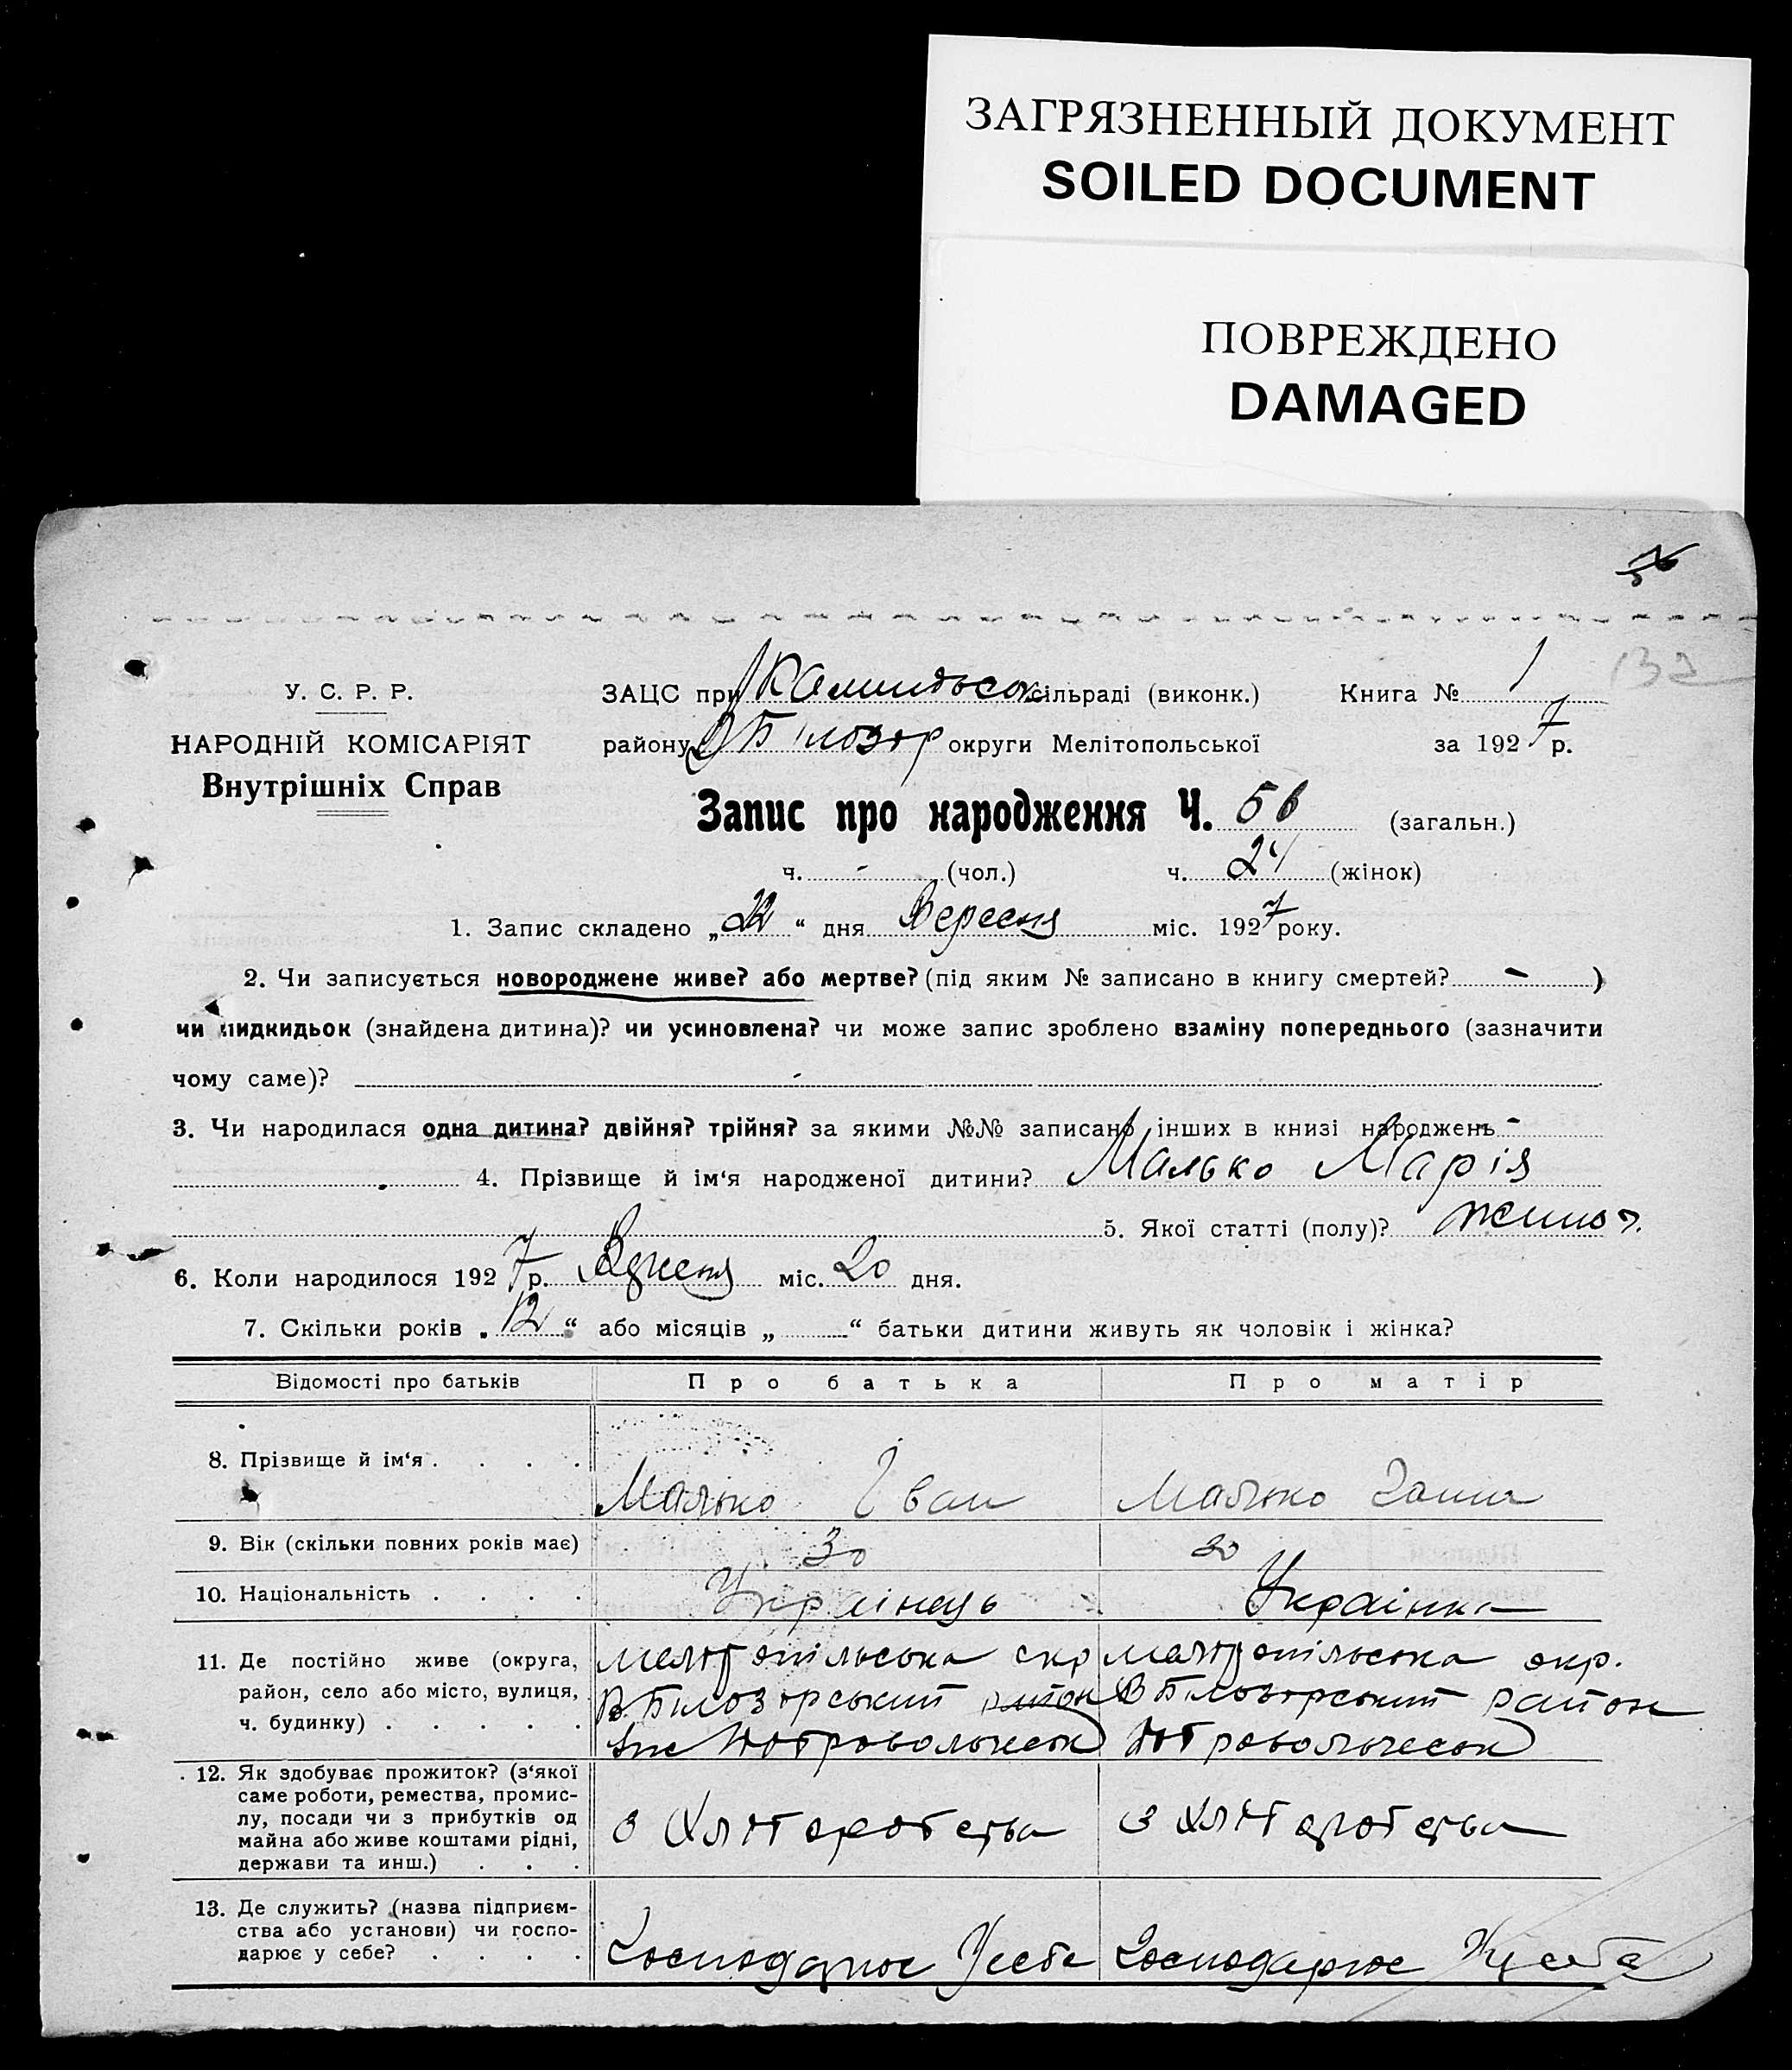 ЗАГРЯЗНЕННЫЙ ДОКУМЕНТ
SOILED DOCUMENT
ПОВРЕЖДЕНО
DAMAGED
У. С. Р. Р.
НАРОДНІЙ КОМІСАРІЯТ
Внутрішніх Справ
ЗАЦС при сільраді (виконк.) Книга № 1
району В Білозер округи Мелітопольської за 1927 р.
Запис про народження Ч. 56 (загальн.)
ч. - (чол.) ч. 24 (жінок)
1. Запис складено „22“ дня Вересня міс. 1927 року.
2. Чи записується новороджене живе? або мертве? (під яким № записано в книгу смертей? - )
чи пидкидьок (знайдена дитина)? чи усиновлена? чи може запис зроблено взаміну попереднього (зазначити
чому саме)? -
3. Чи народилася одна дитина? двійня? трійня? за якими №№ записано інших в книзі народжень -
4. Прізвище й ім‘я народженої дитини? Малько Марія
5. Якої статті (полу)?
6. Коли народилося 1927 р. Вересня міс. 20 дня.
7. Скільки років „12“ або місяців „ “ батьки дитини живуть як чоловік і жінка?
Відомості про батьків Про батька Про матір
8. Прізвище й ім‘я . . . .
Малько Іван Малько Ганна
9. Вік (скільки повних років має) 30 30
10. Національність . . . . Українець Українка
11. Де постійно живе (округа,
район, село або місто, вулиця,
ч. будинку) . . . . .
Мелітопільська окр Мелітопільська окр.
В Білозерський район В Білозерський район
12. Як здобуває прожиток? (з‘якої
саме роботи, ремества, промис-
лу, посади чи з прибутків од
майна або живе коштами рідні,
держави та инш.) . . .
з Хліборобства з Хліборобства
13. Де служить? (назва підприєм-
ства або установи) чи госпо-
дарює у себе? . . . .
Господарює у себе Господарює у себе